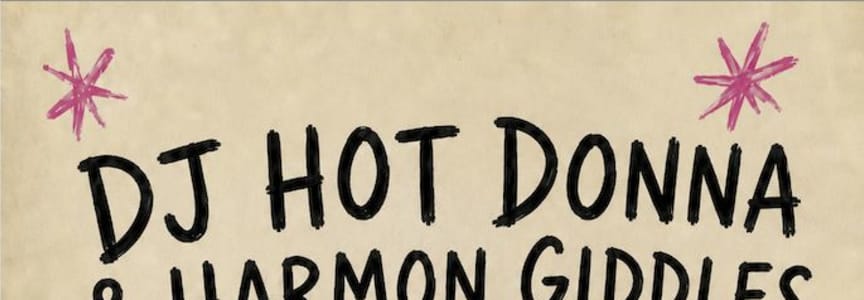 DJ HOT DONNA
& HARMON GIDDLES